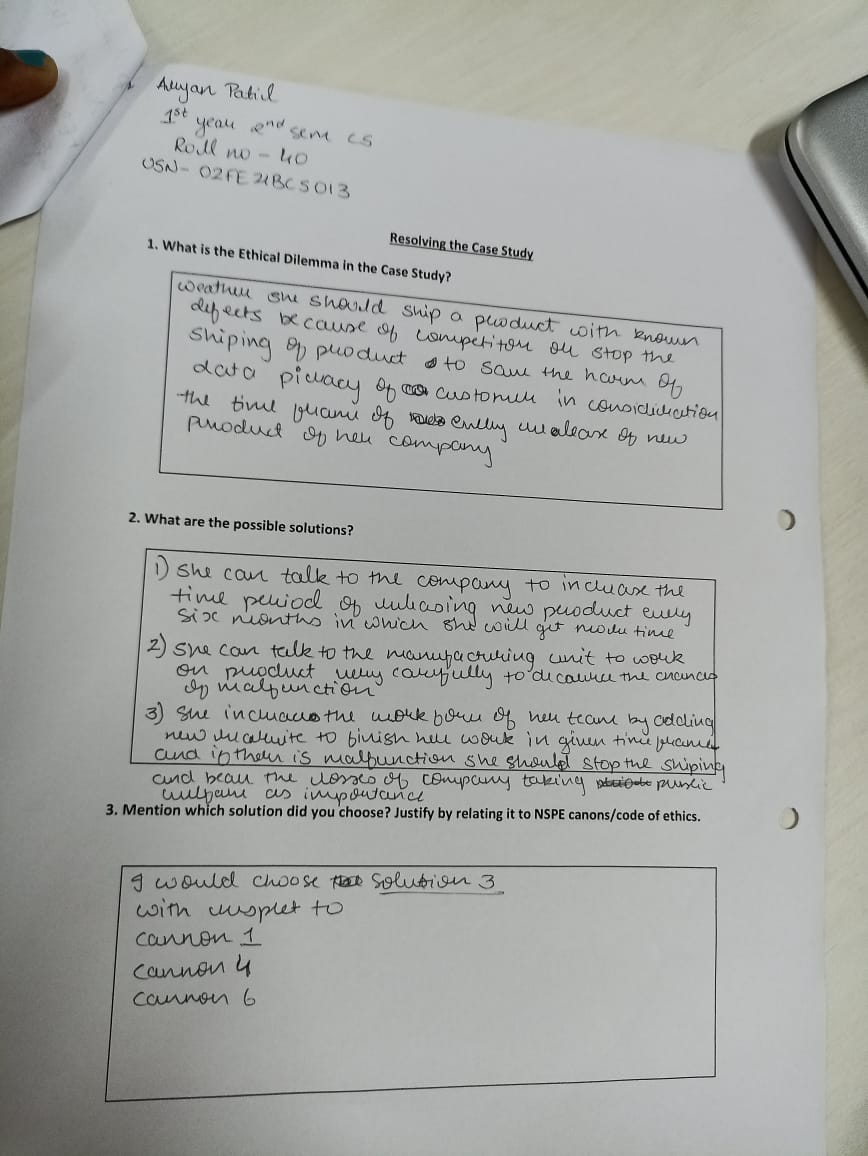 Aryan Patil
1st year 2nd sem cs
Roll no - 40
USN- 02FE21BCS013
Resolving the Case Study
1. What is the Ethical Dilemma in the Case Study?
weather she should ship a product with known
defects because of competitor or stop the
shiping of product to save the harm of
data privacy of customer in consididication
the time frame of every release of new
product of her company
2. What are the possible solutions?
1) she can talk to the company to increase the
time period of releasing new product every
six months in which she will get more time
2) she can talk to the manufacturing unit to work
on product very carefully to decrease the chances
of malfunction
3) She increases the work force of her team by adding
new recruite to finish her work in given time frame
and if their is malfunction she should stop the shiping
and bear the losses of company taking public
welfare as importance
3. Mention which solution did you choose? Justify by relating it to NSPE canons/code of ethics.
I would choose solution 3
with respect to
cannon 1
cannon 4
cannon 6